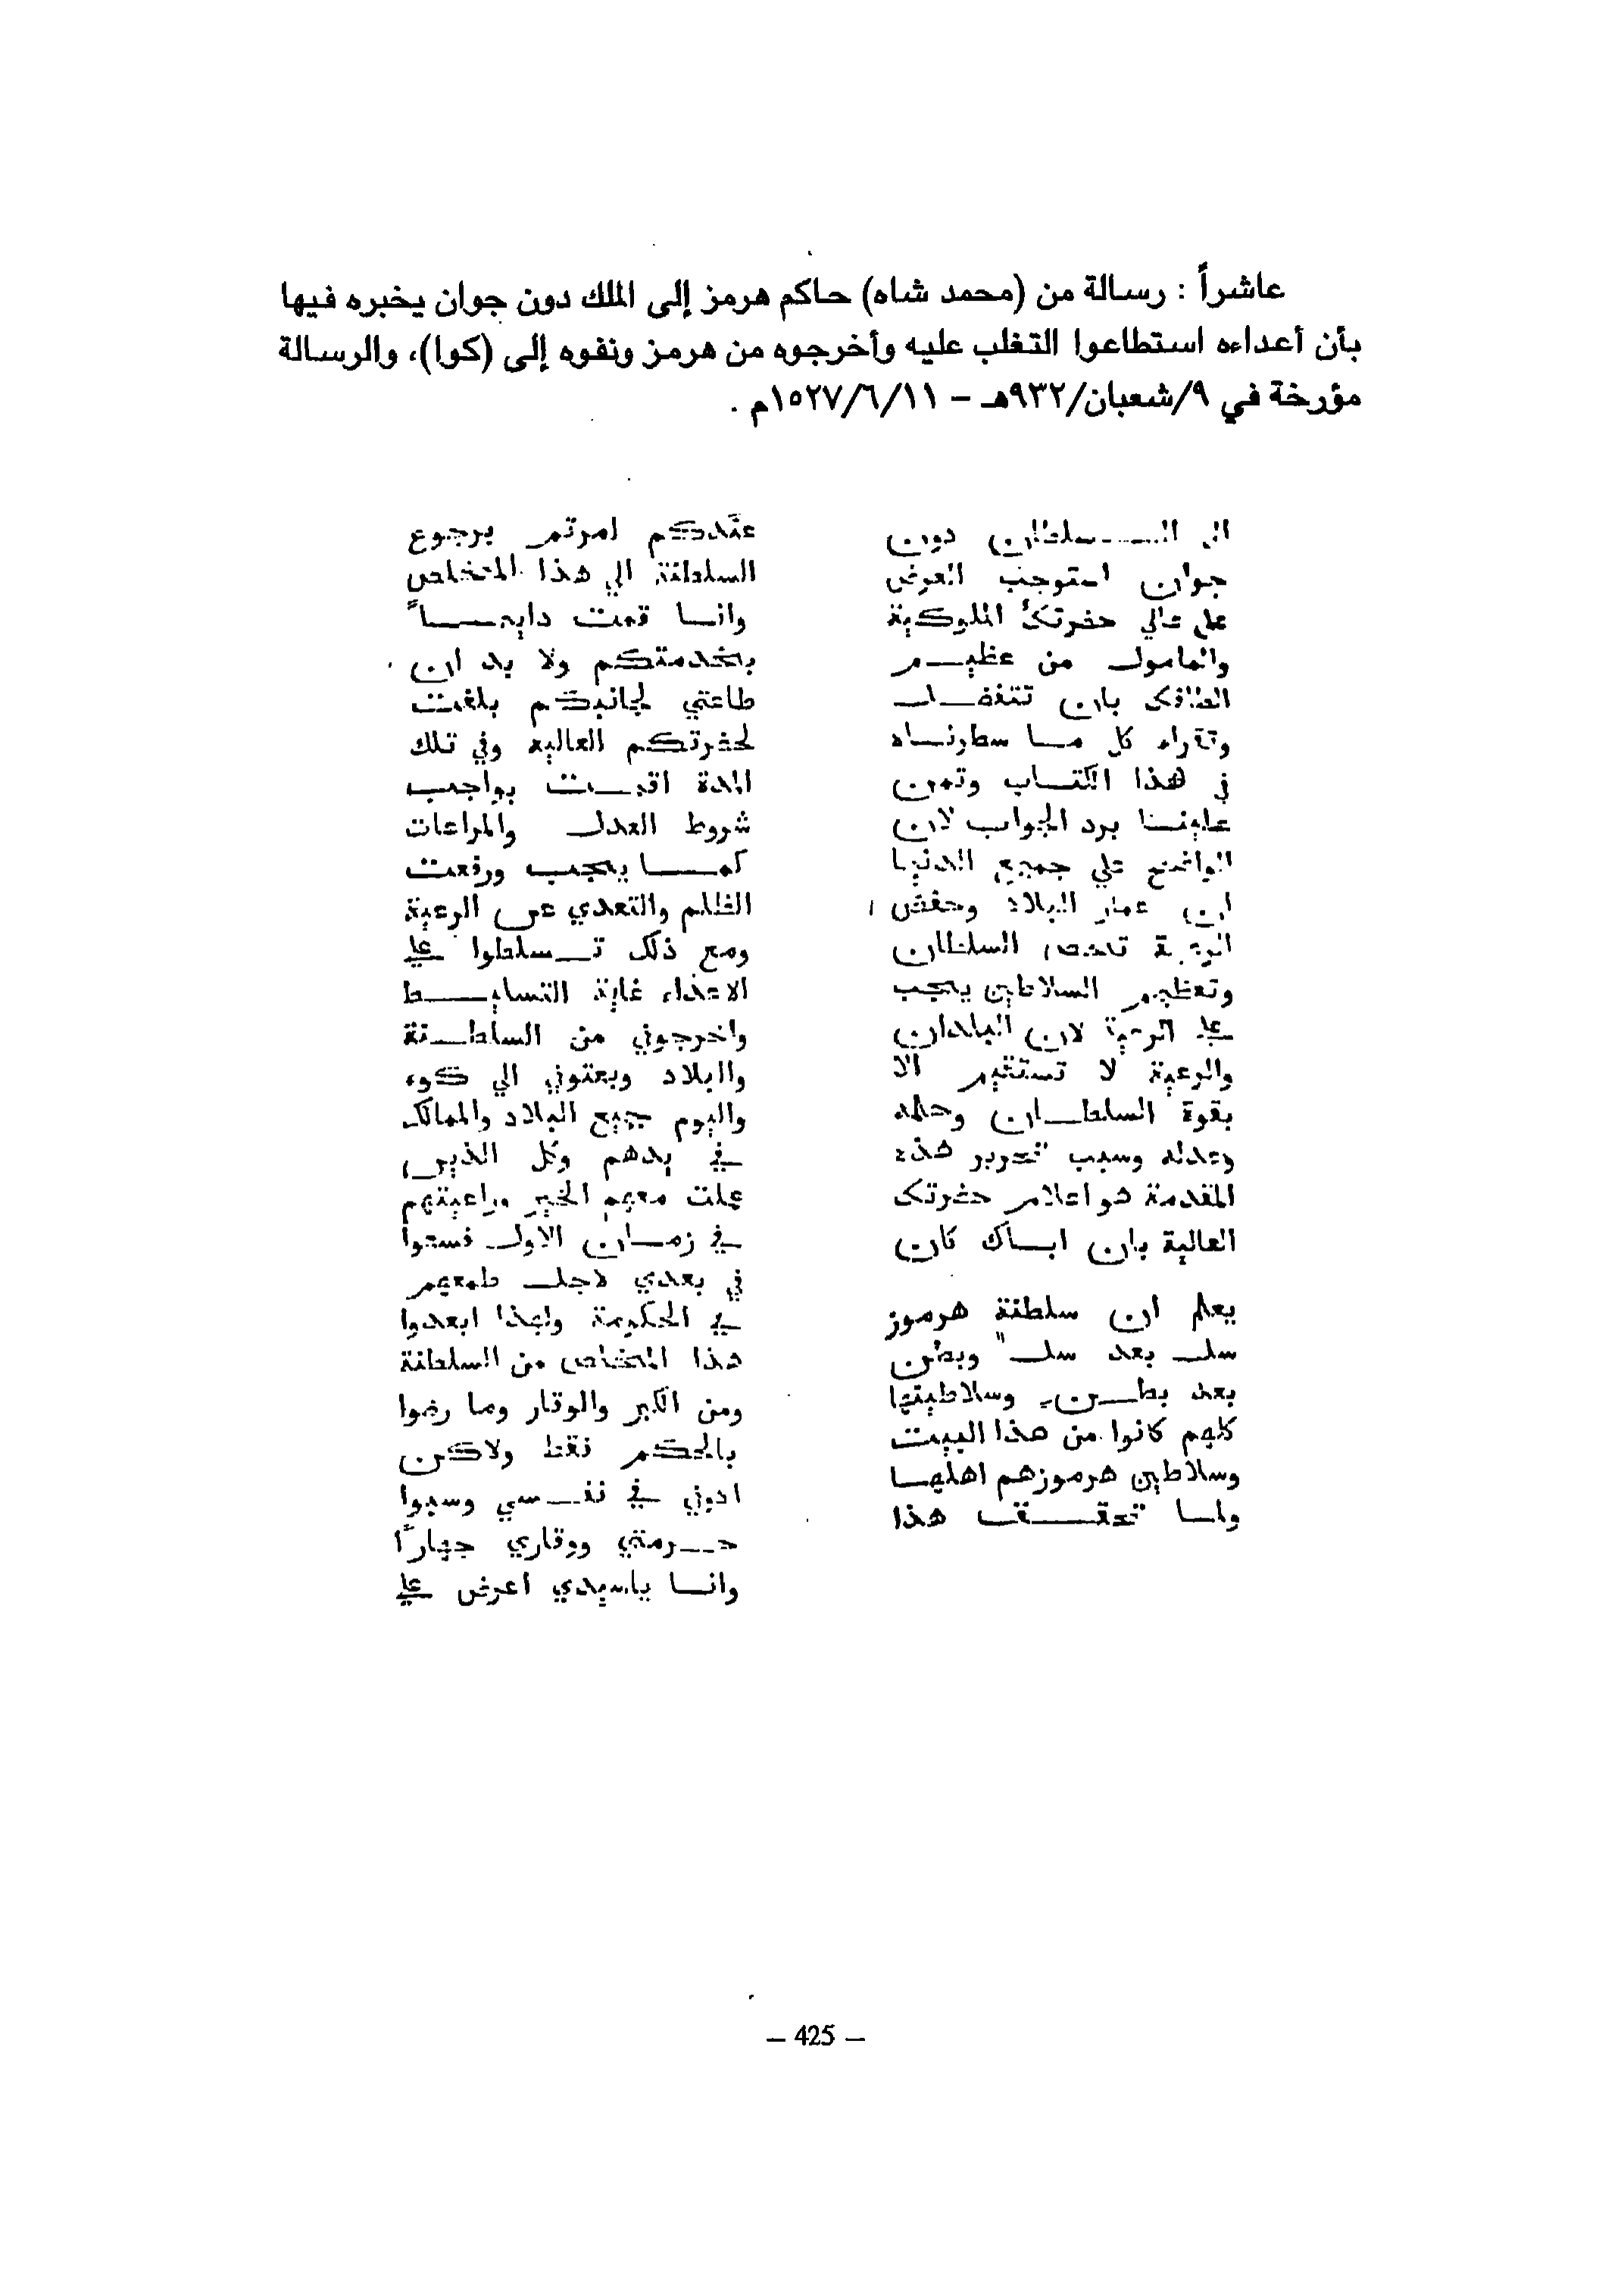 عاشراً : رسالة من (محمد شاه) حاكم هرمز إلى الملك دون جوان يخبره فيها
بأن أعداءه استطاعوا التغلب عليه وأخرجوه من هرمز ونفوه إلى (كوا)، والرسالة
مؤرخة في ٩/شعبان/٩٣٢هـ – ١٥٢٧/٦/١١م .
الى الســلطان دون
جوان استوجب العرض
على عالي حضرتك الملوكية
والمامول من عظيــم
الطافك بان تتفضــل
وتقراء كل مــا سطرنــاه
في هذا الكتــاب وتمن
علينــا برد الجواب لان
الواضح علي جميع الدنيا
ان عمار البلاد وحفض
الرعية تخص السلطان
وتعظيم السلاطين يجب
على الرعية لان البلدان
والرعية لا تستقيم الا
بقوة السلطــان وحلمه
وعدله وسبب تحرير هذه
المقدمة هو اعلام حضرتك
العالية بان ابــاك كان
يعلم ان سلطنة هرموز
سلــ بعد سلــ وبطن
بعد بطــن وسلاطينها
كلهم كانوا من هذا البيت
وسلاطين هرموزهم اهلهــا
ولمــا تحقــق هذا
عندكم امرتم برجوع
السلطنة الي هذا المتخلص
وانــا قمت دايمــاً
بخدمتكم ولا بد ان
طاعتي لجانبكم بلغت
لحضرتكم العالية وفي تلك
المدة اقمــت بواجب
شروط العدل والمراعات
كمــا يجب ورفعت
الظلم والتعدي عن الرعية
ومع ذلك تــسلطوا علي
الاعداء غاية التسليــط
واخرجوني من السلطــنة
والبلاد وبعتوني الي كوه
واليوم جميع البلاد والممالك
في يدهم وكل الذين
عملت معهم الخير وراعيتهم
في زمــان الاول فسعوا
في بعدي لاجل طمعهم
في الحكومة ولهذا ابعدوا
هذا المتخلص من السلطنة
ومن الكبر والوقار وما رضوا
بالحكم فقط ولاكن
ادوني في نفــسي وسبوا
حــرمتي ووقاري جهاراً
وانــا ياسيدي اعرض علي
– 425 –